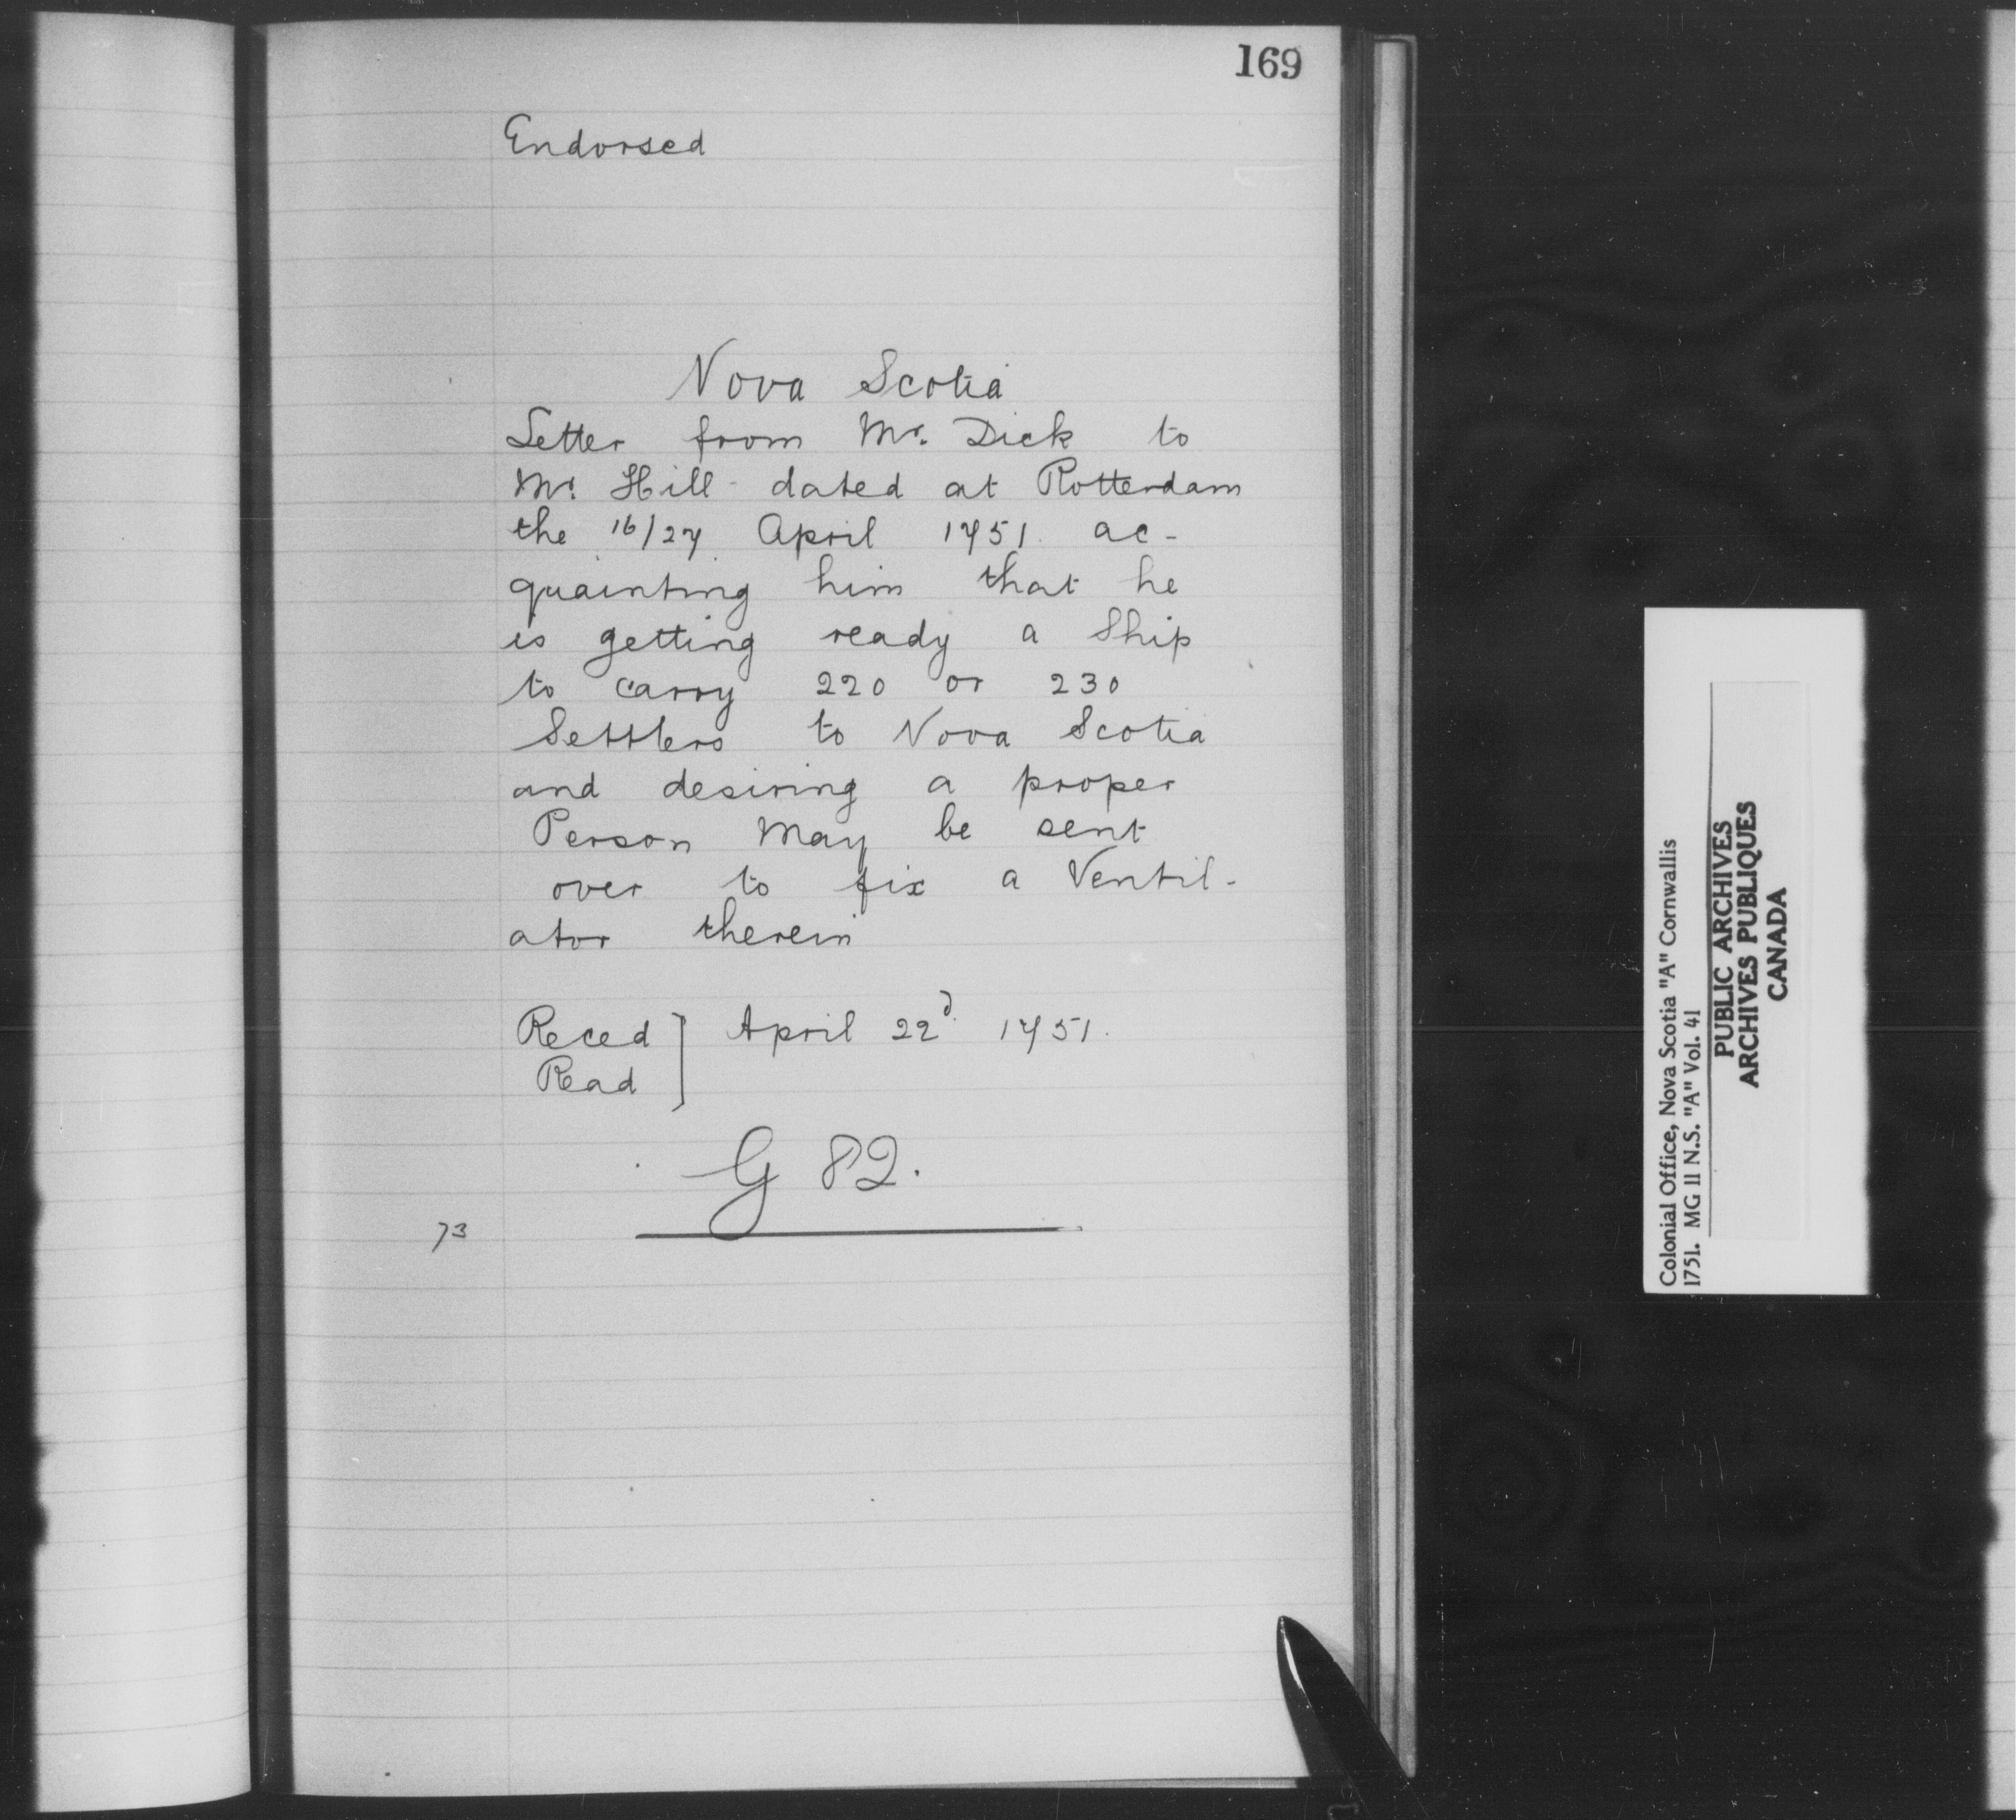 169
Endorsed
Nova Scotia
Letter from Mr. Dick to
Mr. Hill dated at Rotterdam
the 16/27 April 1751. ac-
quainting him that he
is getting ready a Ship
to carry 220 or 230
Settlers to Nova Scotia
and desiring a proper
Person May be sent
over to fix a Ventil-
ator therein
Reced ] April 22d. 1751.
Read
G 82.
73
Colonial Office, Nova Scotia "A" Cornwallis
1751. MG 11 N.S. "A" Vol. 41
PUBLIC ARCHIVES
ARCHIVES PUBLIQUES
CANADA